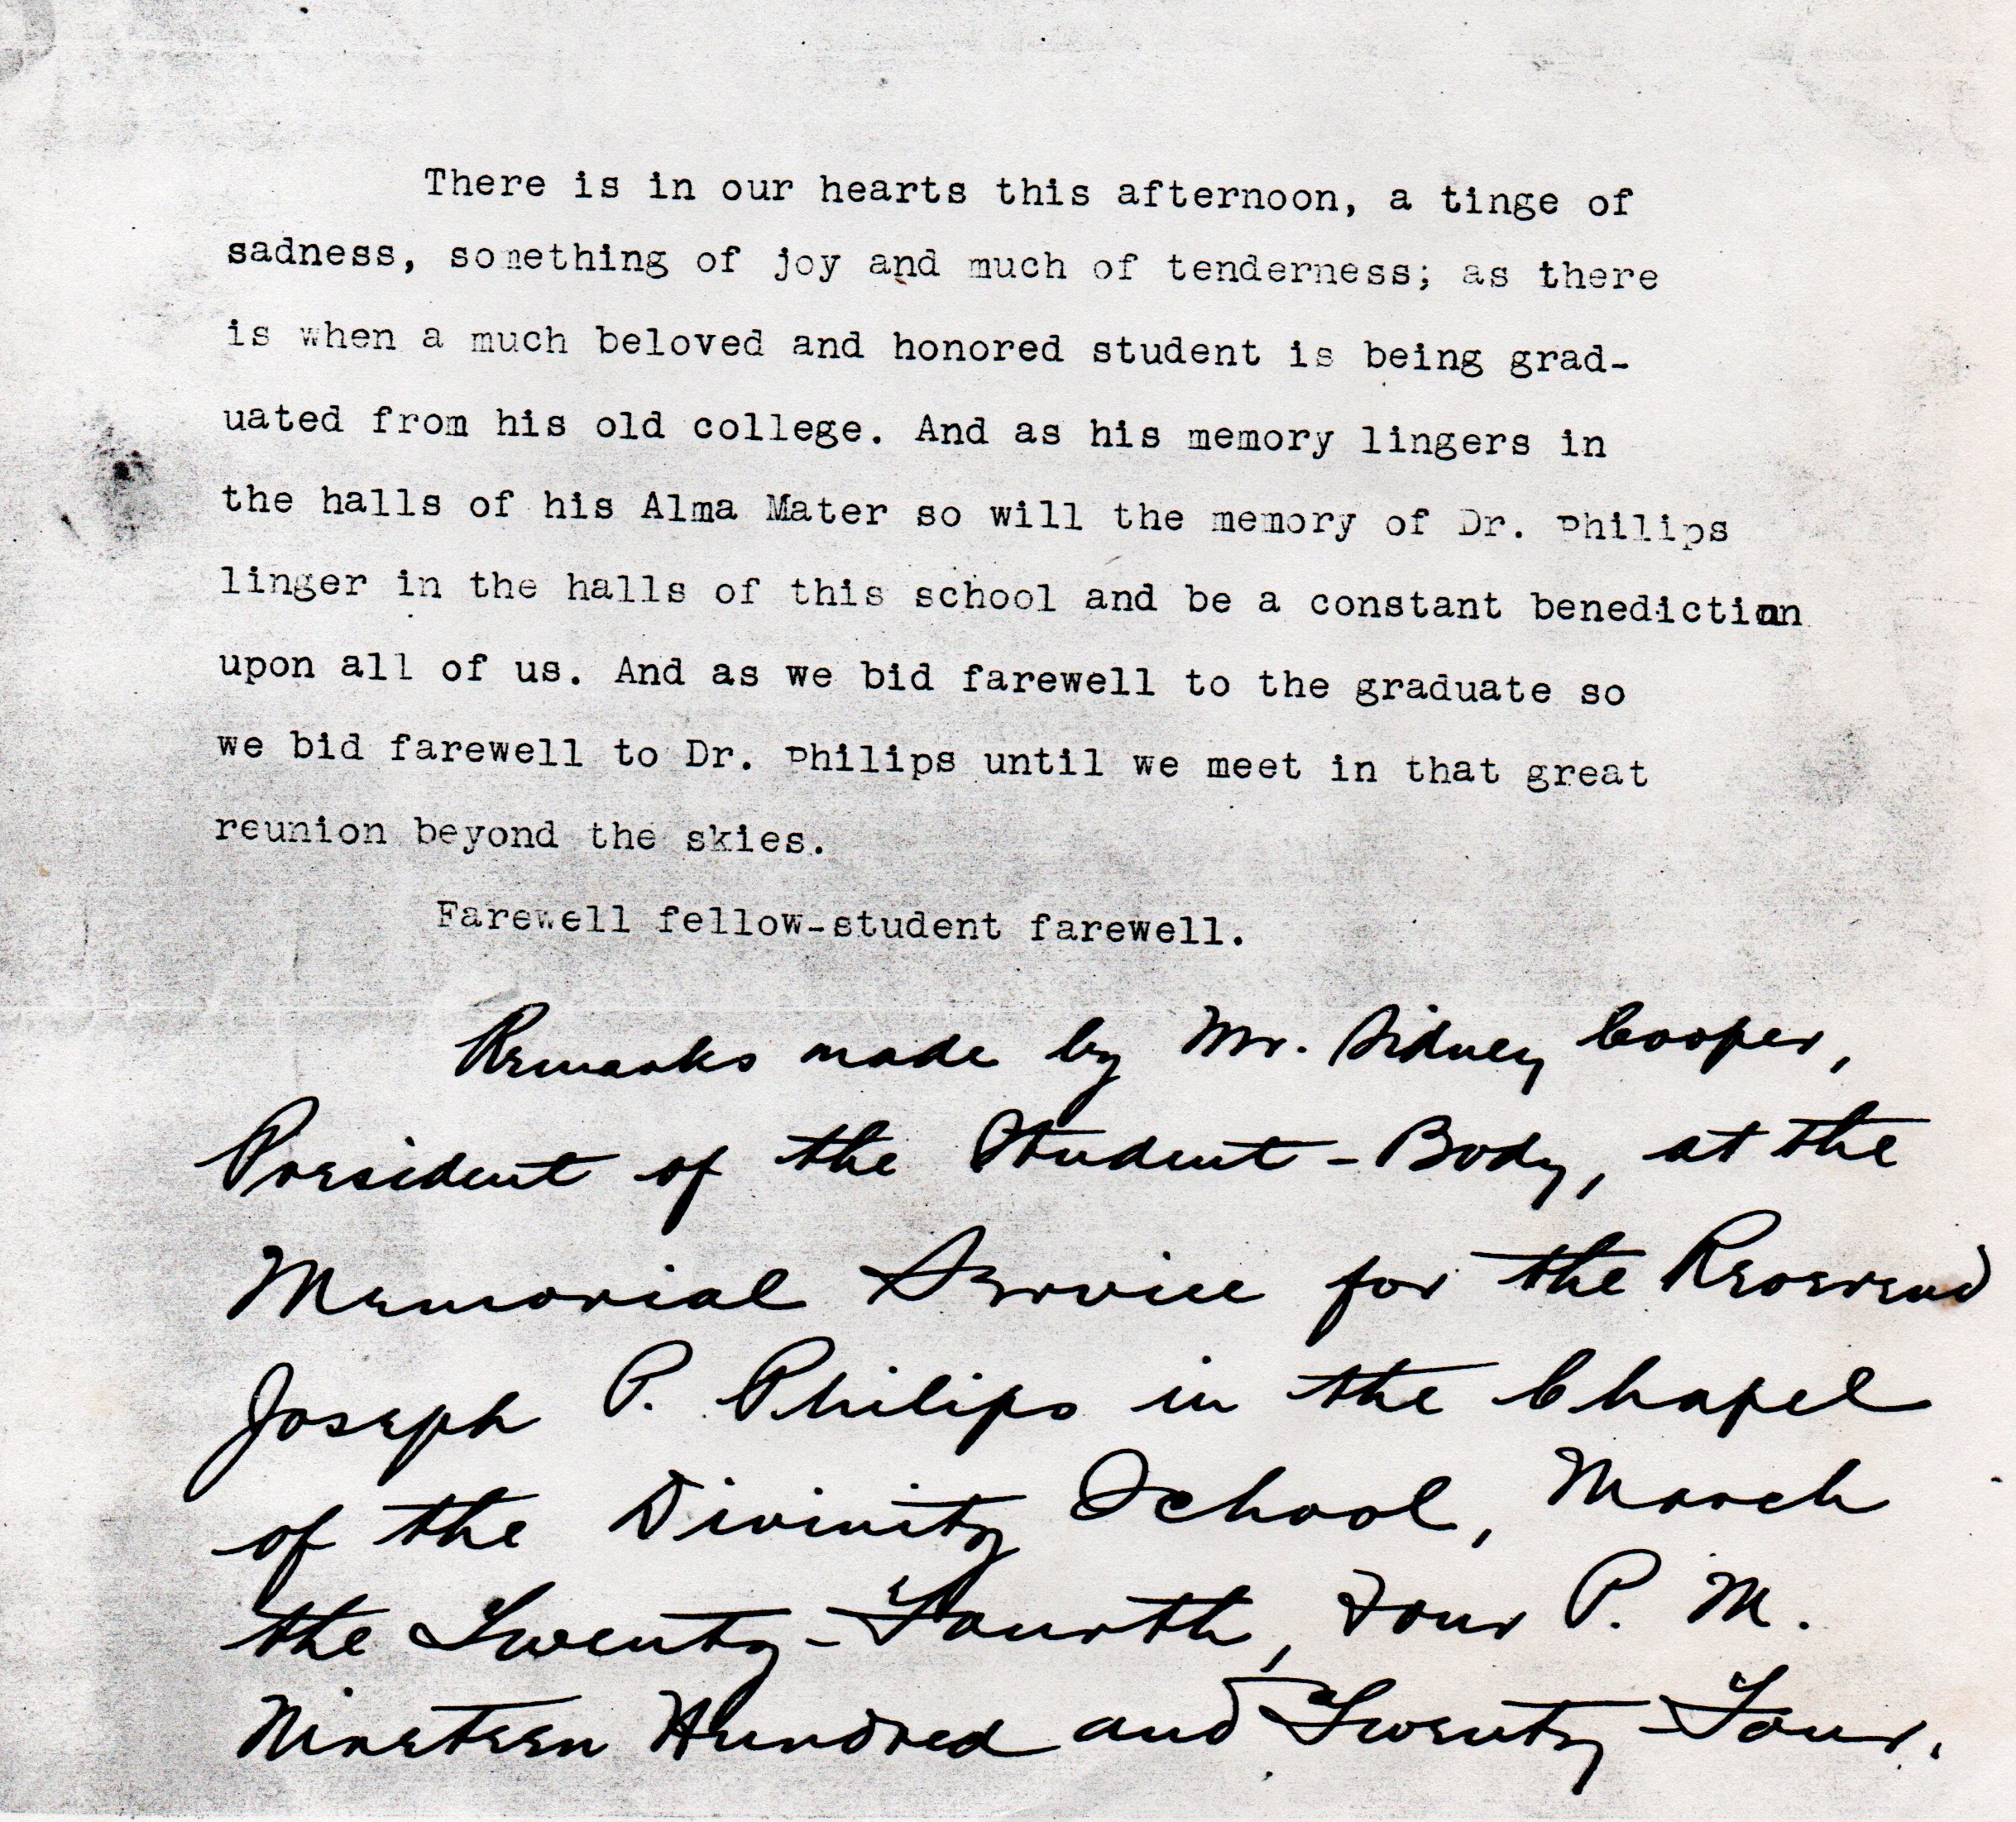 There is in our hearts this afternoon, a tinge of
sadness, something of joy and much of tenderness; as there
is when a much beloved and honored student is being grad-
uated from his old college. And as his memory lingers in
the halls of his Alma Mater so will the memory of Dr. Philips
linger in the halls of this school and be a constant benediction
upon all of us. And as we bid farewell to the graduate so
we bid farewell to Dr. Philips until we meet in that great
reunion beyond the skies.
Farewell fellow-student farewell.
Remarks made by Mr. Sidney Cooper,
President of the Student-Body, at the
Memorial Service for the Reverend
Joseph P. Philips in the Chapel
of the Divinity School, March
the Twenty-Fourth, Four P. M.
Nineteen Hundred and Twenty-Four.